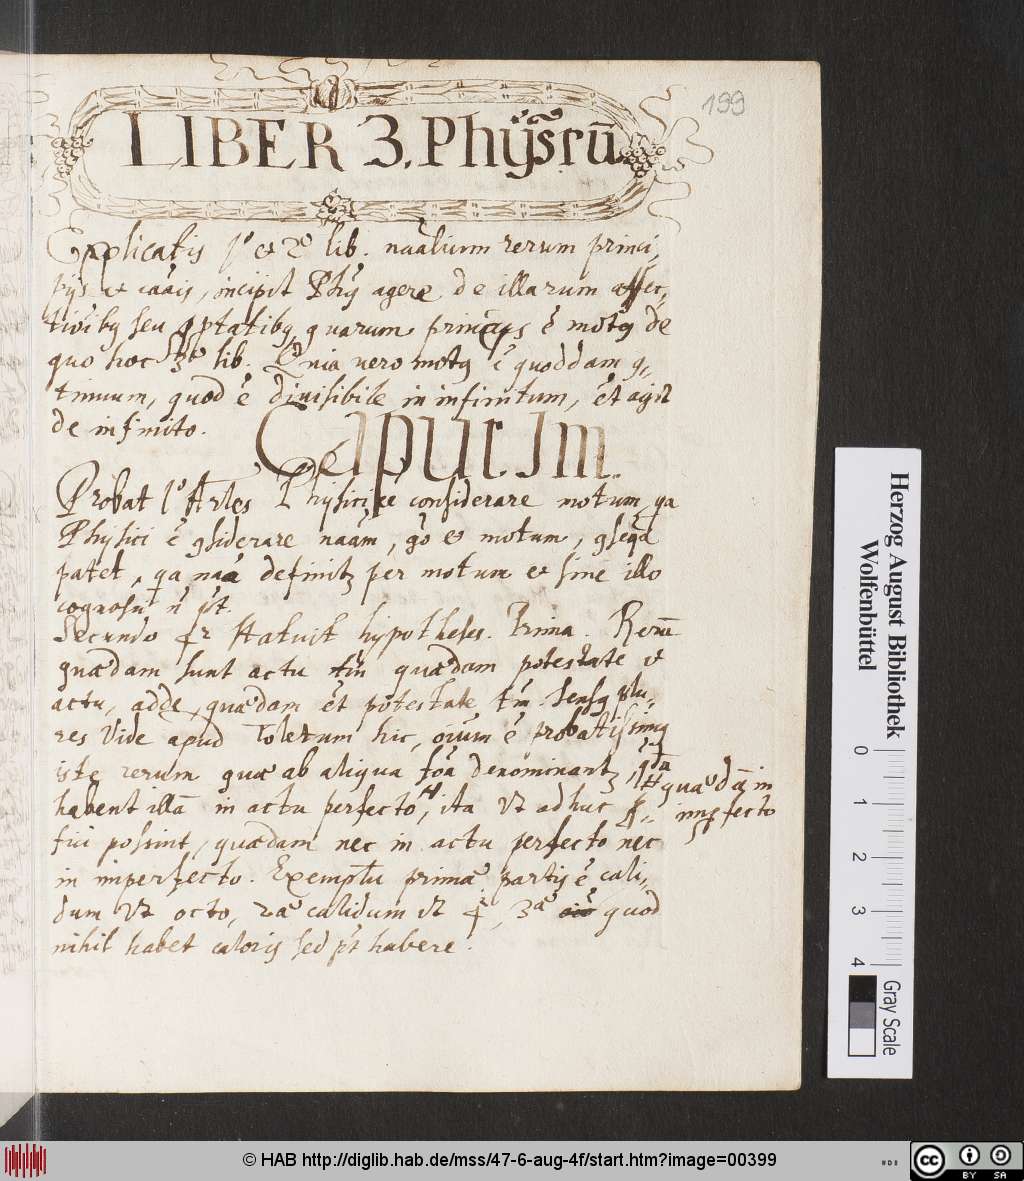 199
LIBER 3. Phÿs̃rū
Explicatis 1º et 2º lib. nãalium rerum princi,
pijs et cãais, incipit Phỹ agere de illarum affec,
quarum ẽ motq de
quo hoc 3º lib. Quia vero motq ẽ quoddam 9,
tinuum, quod ẽ diuisibile in infinitum, ẽt agit
de infinito.
Caput Im.
Probat 1º Arles Physici ẽe considerare motum, qa
Physici ẽ 9siderare naãm, gõ et motum, 9seqã
patet, qa naã definitʒ per motum et sine illo
Secundo statuit hypotheses. Prima. Rerũ
quædam sunt actu tm̃ quædam potestate et
actu, adde, quædam ẽt potestate tm̃. Sensq plu,
res Vide apud Toletum hic, oĩum ẽ probatissimq
iste rerum quæ ab aliqua foã denominantʒ, qdã
habent illã in actu perfecto #, ita Vt adhuc
# quædã in
imperfecto
fici possint, quædam nec in actu perfecto nec
in imperfecto. Exemplũ primæ partis ẽ cali,
dum Vt octo, 2æ calidum Vt 4, 3æ quod
nihil habet caloris sed pt habere.
Herzog August Bibliothek
Wolfenbüttel
0 1 2 3 4
Gray Scale
© HAB http://diglib.hab.de/mss/47-6-aug-4f/start.htm?image=00399
cc BY SA